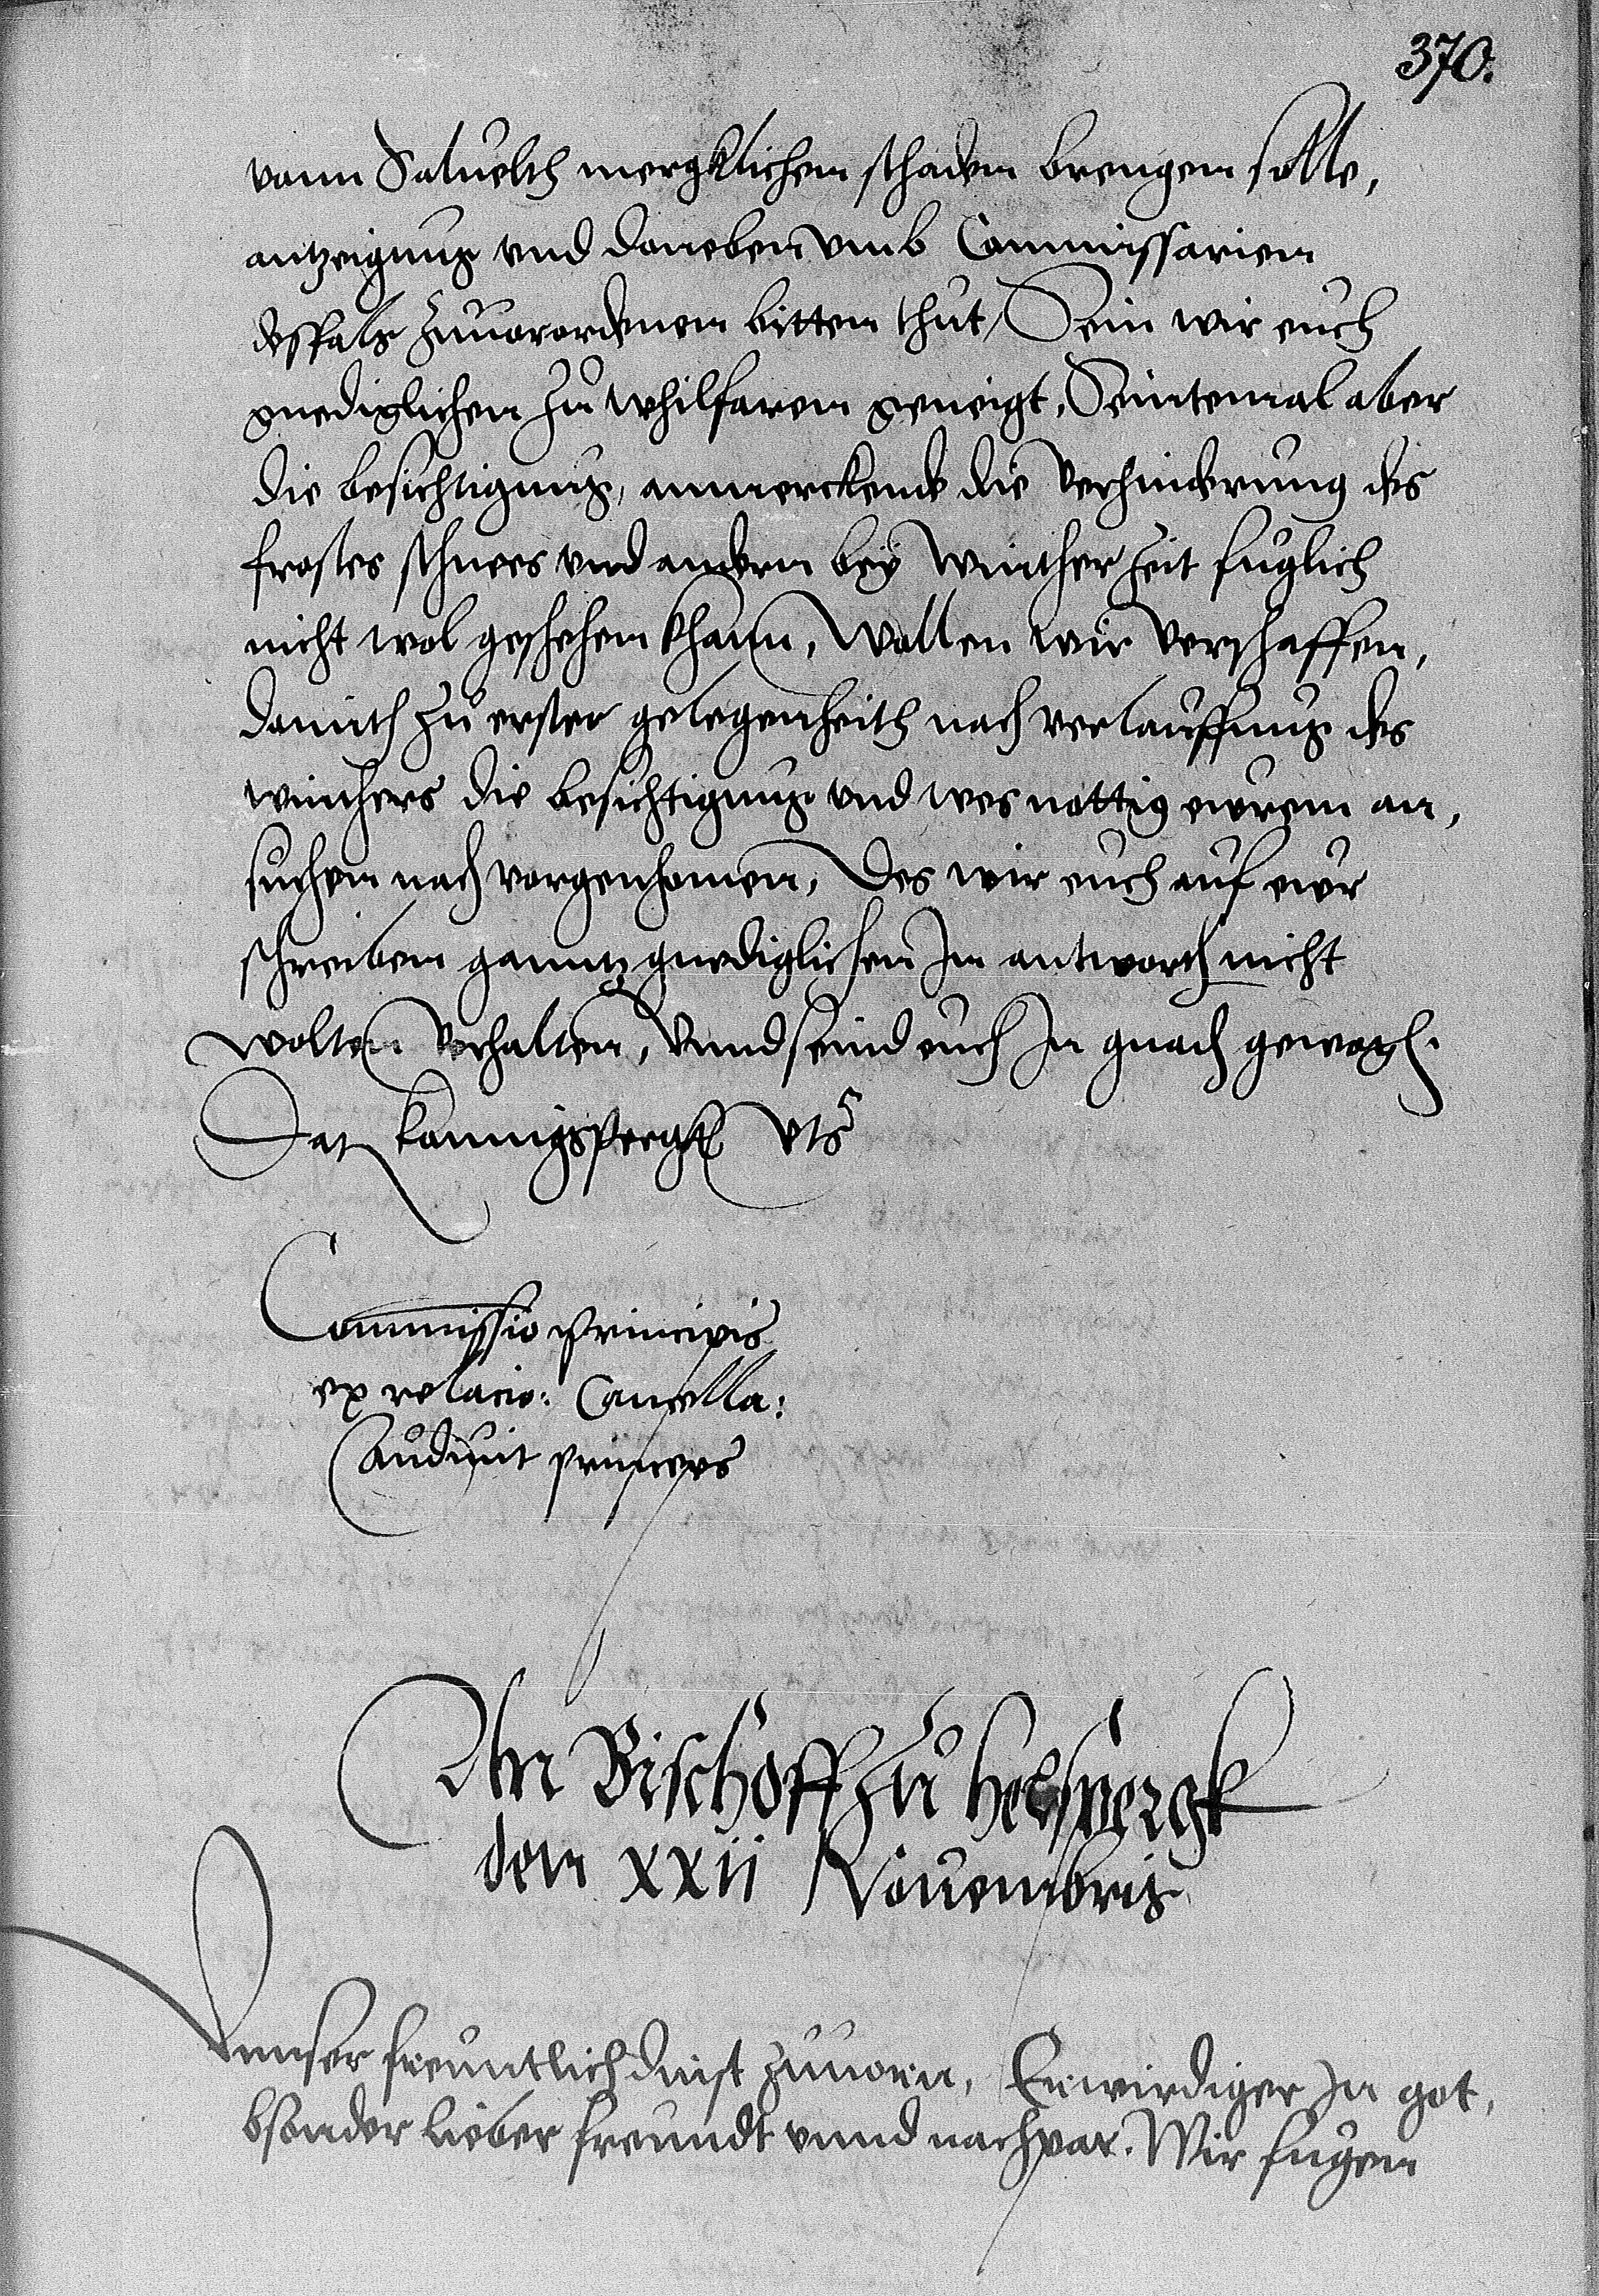 370.
vonn Saluelth mergklichen schaden brengen solle,
antzeigung vnd daneben vmb Commissarien
desfals zuuorordenen bitten thut, Sein wir euch
gnediglichen zu whilfaren geneigt, Seintemal aber
die besichtigung, anmerckende die verhinderung des
frostes schnees vnd andern bey winther zeit fuglich
nicht wol geschehen khann, Wollen wir verschaffen,
damith zu erster gelegenheith nach verlauffung des
winthers die besichtigung vnd wes nottig eurem an,
suchen nach vorgenhomen, Des wir euch auf eur
schreiben gantz gnediglichen In antworth nicht
wolten verhalten, Vnnd seind euch In gnaden
Dat konnigspergk vts
Commissio principis
ex relacio: Cancella:
Audiuit princeps
An Bischoff zu Helspergk
den XXII Nouembris
Vnnser freuntlich dinst zuuorn, Erwirdiger In got,
bsonder lieber freundt vnnd nachpar. Wir fugen